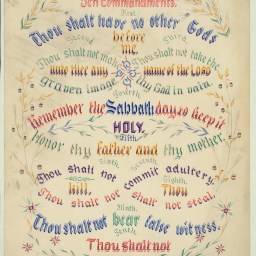 Ten Commandments.
First
Thou shalt have no other Gods
before
Second me. Third
Thou shalt not make Thou shalt not take the
unto thee any name of the Lord
graven image thy God in vain.
Fourth
Remember the Sabbath day to keep it
HOLY.
Fifth
Honor thy father and thy mother.
Sixth Seventh
Thou shalt not commit adultery.
Eighth
kill. Thou
Thou shalt not shalt not steal.
Ninth
Thou shalt not bear false witness.
Tenth
Thou shalt not